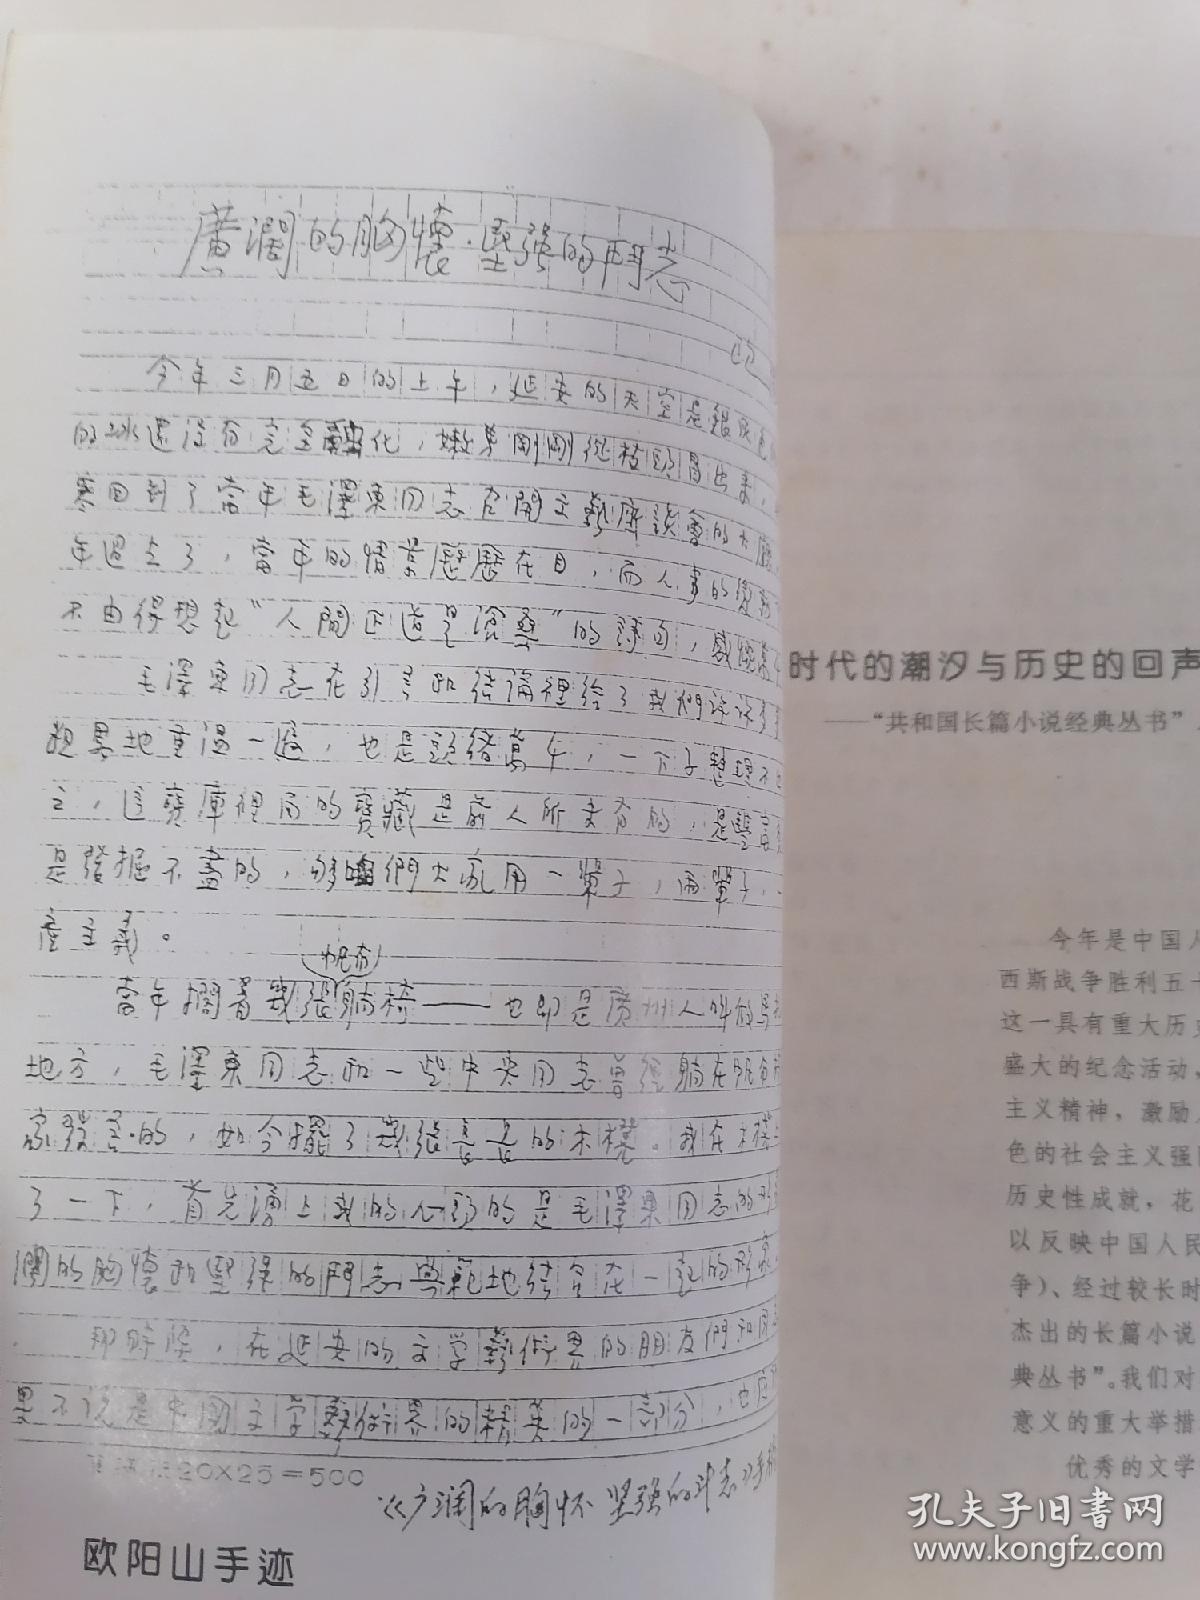 廣濶的胸懷·堅強的鬥志
今年三月五日的上午，延安的天空是銀灰色
的冰還没有完全融化，嫩草剛剛從枯頭冒出来，
寒回到了當年毛澤東同志召開文藝座談會的大廳
年過去了，當年的情景歷歷在目，而人事的變
不由得想起“人間正道是滄桑”的詩句，感慨萬
毛澤東同志在引言和結論裡給了我們許許多多
概畧地重温一遍，也是頭緒萬千，一下子整理不
主，這寶庫裡面的寶藏是前人所未有的，是豐富
是發掘不盡的，够咱們大家用一輩子，兩輩子，
產主義。
帆布
當年擱着幾張躺椅——也即是廣州人叫做
地方，毛澤東同志和一些中央同志曾經躺在帆布
的，如今擺了幾張長長的木櫈。我在木櫈
了一下，首先湧上我的心頭的是毛澤東同志的
濶的胸懷和堅強的鬥志典範地結合在一起的形象
那時候，在延安的文学藝術界的朋友們和同志
畧不説是中國文学藝術界的精英的一部分，也
20×25=500
《广润的胸怀 坚强的斗志》手
欧阳山手迹
时代的潮汐与历史的回声
——“共和国长篇小说经典丛书”
今年是中国人
西斯战争胜利五十
这一具有重大历史
盛大的纪念活动、
主义精神，激励
色的社会主义强国
历史性成就，花
以反映中国人民
争）、经过较长时
杰出的长篇小说
典丛书”。我们对
意义的重大举措
优秀的文学
孔夫子旧书网
www.kongfz.com